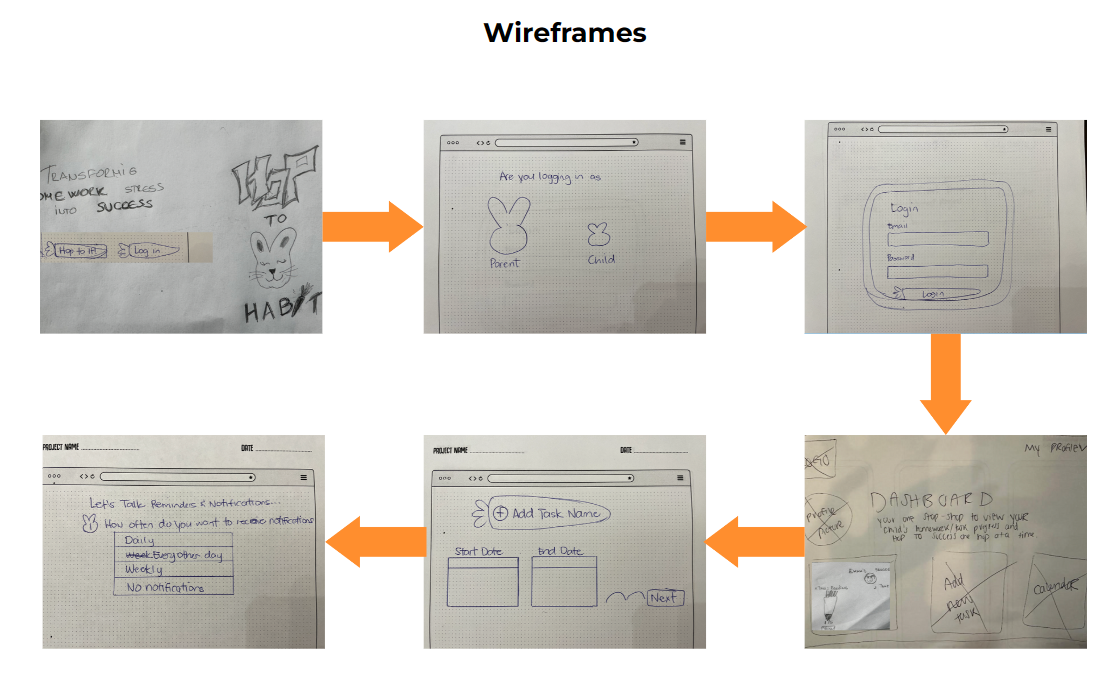 Wireframes
TRANSFORMIG
OMEWORK STRESS
INTO SUCCESS
Hop to it!
Log in
HOP
TO
HABIT
Are you logging in as
Parent
Child
Login
Email
Password
Login
My Profile
Profile
Picture
DASHBOARD
your one stop-shop to view your
child's homework/task progress and
Hop to success one hop at a time.
Add
new
task
Calendar
PROJECT NAME
DATE
Add Task Name
Start Date
End Date
Next
PROJECT NAME
DATE
Let's Talk Reminders & Notifications...
How often do you want to receive notifications
Daily
Every other day
Weekly
No notifications